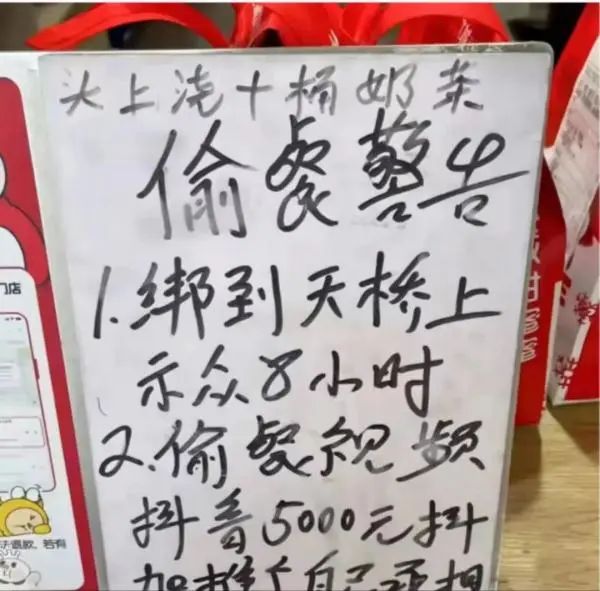 头上浇十桶奶茶
偷餐警告
1.绑到天桥上
示众8小时
2.偷餐视频
抖音5000元抖
门店
款，若有